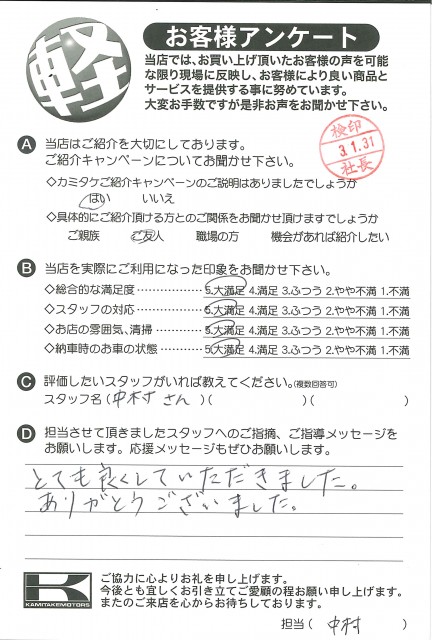 軽
お客様アンケート
当店では、お買い上げ頂いたお客様の声を可能
な限り現場に反映し、お客様により良い商品と
サービスを提供する事に努めています。
大変お手数ですが是非お声をお聞かせ下さい。
検印
3.1.31
社長
A 当店はご紹介を大切にしております。
ご紹介キャンペーンについてお聞かせ下さい。
◇カミタケご紹介キャンペーンのご説明はありましたでしょうか
はい いいえ
◇具体的にご紹介頂ける方とのご関係をお聞かせ頂けますでしょうか
ご親族 ご友人 職場の方 機会があれば紹介したい
B 当店を実際にご利用になった印象をお聞かせ下さい。
◇総合的な満足度 ················ 5.大満足 4.満足 3.ふつう 2.やや不満 1.不満
◇スタッフの対応 ················ 5.大満足 4.満足 3.ふつう 2.やや不満 1.不満
◇お店の雰囲気、清掃 ············ 5.大満足 4.満足 3.ふつう 2.やや不満 1.不満
◇納車時のお車の状態 ············ 5.大満足 4.満足 3.ふつう 2.やや不満 1.不満
C 評価したいスタッフがいれば教えてください。(複数回答可)
スタッフ名 ( 中村さん )( )( )
D 担当させて頂きましたスタッフへのご指摘、ご指導メッセージを
お願いします。応援メッセージもぜひお願いします。
とても良くしていただきました。
ありがとうございました。
K
KAMITAKEMOTORS
ご協力に心よりお礼を申し上げます。
今後とも宜しくお引き立てご愛顧の程お願い申し上げます。
またのご来店を心からお待ちしております。
担当 ( 中村 )